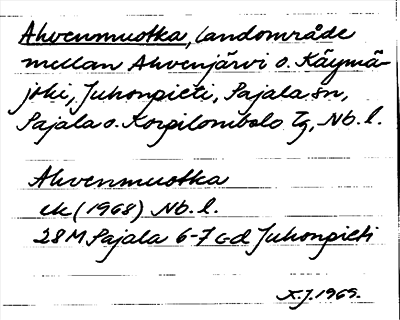 Ahvenmuotka, landområde
mellan Ahvenjärvi o. Käymä-
joki, Juhonpieti, Pajala sn,
Pajala o. Korpilombolo tg, Nb. l.
Ahvenmuotka
ek (1968) Nb. l.
28 M Pajala 6-7 c-d Juhonpieti
X.J. 1969.